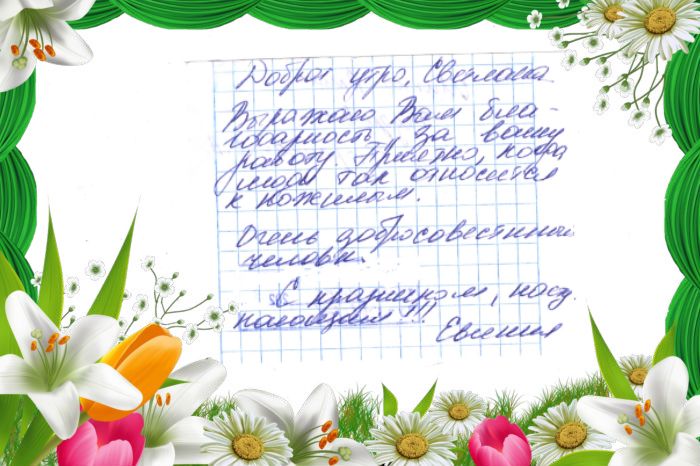 Доброе утро, Светлана
Выражаю Вам бла-
годарность за вашу
работу Приятно, когда
люди так относятся
к пожилым.
Очень добросовестный
человек.
С праздником, 
Евгения